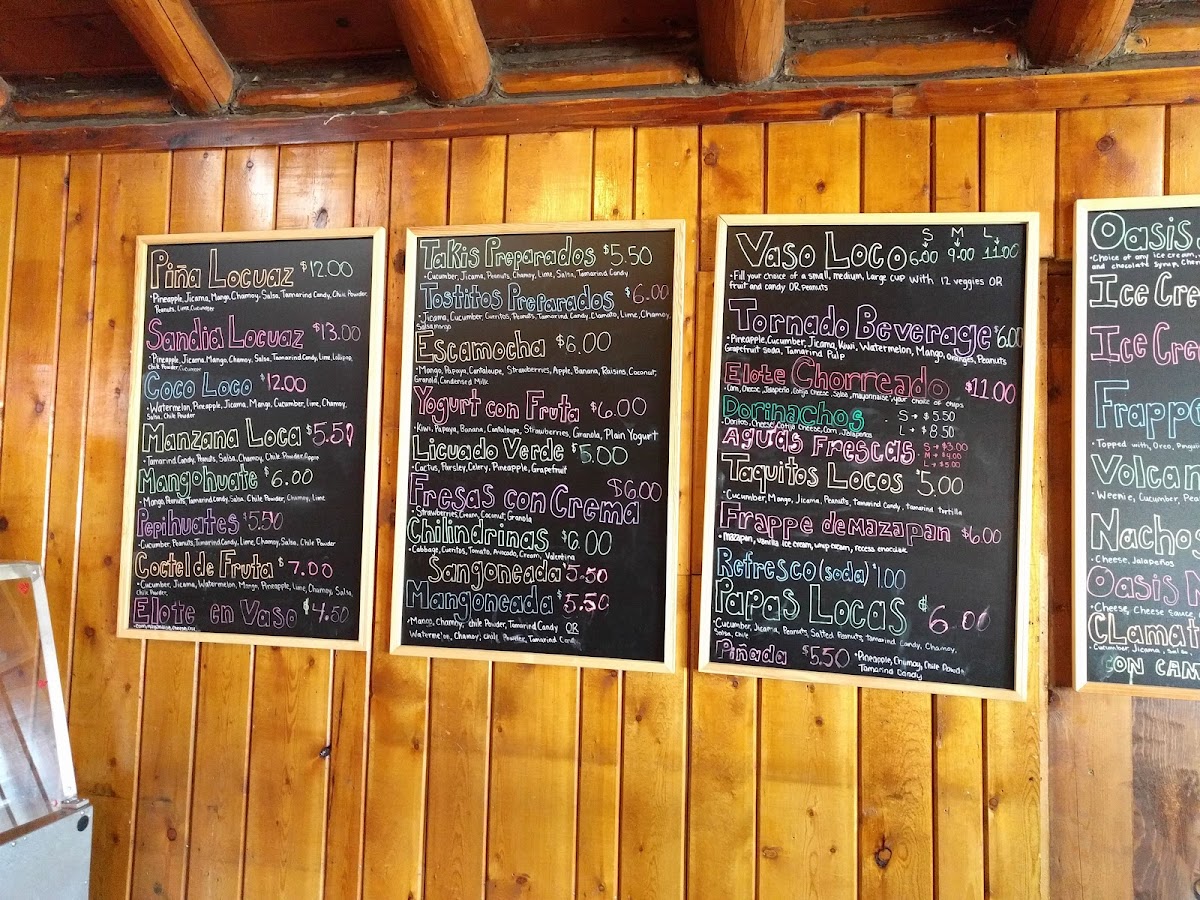 Piña Locuaz $12.00
•Pineapple, Jicama, Mango, Chamoy, Salsa, Tamarind Candy, Chile Powder,
Peanuts, Lime, Cucumber
Sandia Locuaz $13.00
•Pineapple, Jicama, Mango, Chamoy, Salsa, Tamarind Candy, Lime, Lollipop,
Chile Powder, Cucumber
Coco Loco $12.00
•Watermelon, Pineapple, Jicama, Mango, Cucumber, Lime, Chamoy,
Salsa, Chile Powder
Manzana Loca $5.50
•Tamarind Candy, Peanuts, Salsa, Chamoy, Chile Powder, Apple
Mangohuate $6.00
•Mango, Peanuts, Tamarind Candy, Salsa, Chile Powder, Chamoy, Lime
Pepihuates $5.50
•Cucumber, Peanuts, Tamarind Candy, Lime, Chamoy, Salsa, Chile Powder
Coctel de Fruta $7.00
•Cucumber, Jicama, Watermelon, Mango, Pineapple, Lime, Chamoy, Salsa,
Chile Powder,
Elote en Vaso $4.50
Takis Preparados $5.50
•Cucumber, Jicama, Peanuts, Chamoy, Lime, Salsa, Tamarind Candy
Tostitos Preparados $6.00
•Jicama, Cucumber, Cueritos, Peanuts, Tamarind Candy, Clamato, Lime, Chamoy,
Salsa, Mango
Escamocha $6.00
•Mango, Papaya, Cantaloupe, Strawberries, Apple, Banana, Raisins, Coconut,
Granola, Condensed Milk
Yogurt con Fruta $6.00
•Kiwi, Papaya, Banana, Cantaloupe, Strawberries, Granola, Plain Yogurt
Licuado Verde $5.00
•Cactus, Parsley, Celery, Pineapple, Grapefruit
Fresas con Crema $6.00
•Strawberries, Cream, Coconut, Granola
Chilindrinas $6.00
•Cabbage, Cueritos, Tomato, Avocado, Cream, Valentina
Sangoneada $5.50
Mangoneada $5.50
•Mango, Chamoy, Chile Powder, Tamarind Candy OR
Watermelon, Chamoy, Chile Powder, Tamarind Candy
S M L
Vaso Loco 6.00 9.00 11.00
•Fill your choice of a small, medium, large cup with 12 veggies OR
fruit and candy OR peanuts
Tornado Beverage $6.00
•Pineapple, Cucumber, Jicama, Kiwi, Watermelon, Mango, oranges, Peanuts
Grapefruit soda, Tamarind Pulp
Elote Chorreado $11.00
•Corn, Cheese, Jalapeño, Cotija Cheese, Salsa, mayonnaise your choice of chips
Dorinachos • S → $5.50
•Doritos, Cheese, Cotija Cheese, Corn, Jalapeños • L → $8.50
Aguas Frescas • S → $3.00
• M → $4.00
• L → $5.00
Taquitos Locos $5.00
•Cucumber, Mango, Jicama, Peanuts, tamarind Candy, tamarind tortilla
Frappe de Mazapan $6.00
•Mazapan, Vanilla Ice cream, whip cream, reeces chocolate
Refresco (soda) $1.00
Papas Locas $6.00
•Cucumber, Jicama, Peanuts, Salted Peanuts, Tamarind Candy, Chamoy,
Salsa, Chile
Piñada $5.50 •Pineapple, Chamoy, Chile Powder
Tamarind Candy
Oasis
•Choice of any ice cream,
and chocolate syrup, Cha
Ice Cre
Ice Cre
Frappe
•Topped with, Oreo,
Volcan
Weenie, Cucumber, Pea
Nachos
•Cheese, Jalapeños
Oasis N
•Cheese, Cheese Sauce
Clamat
•Cucumber, Jicama, Salsa
CON CAM